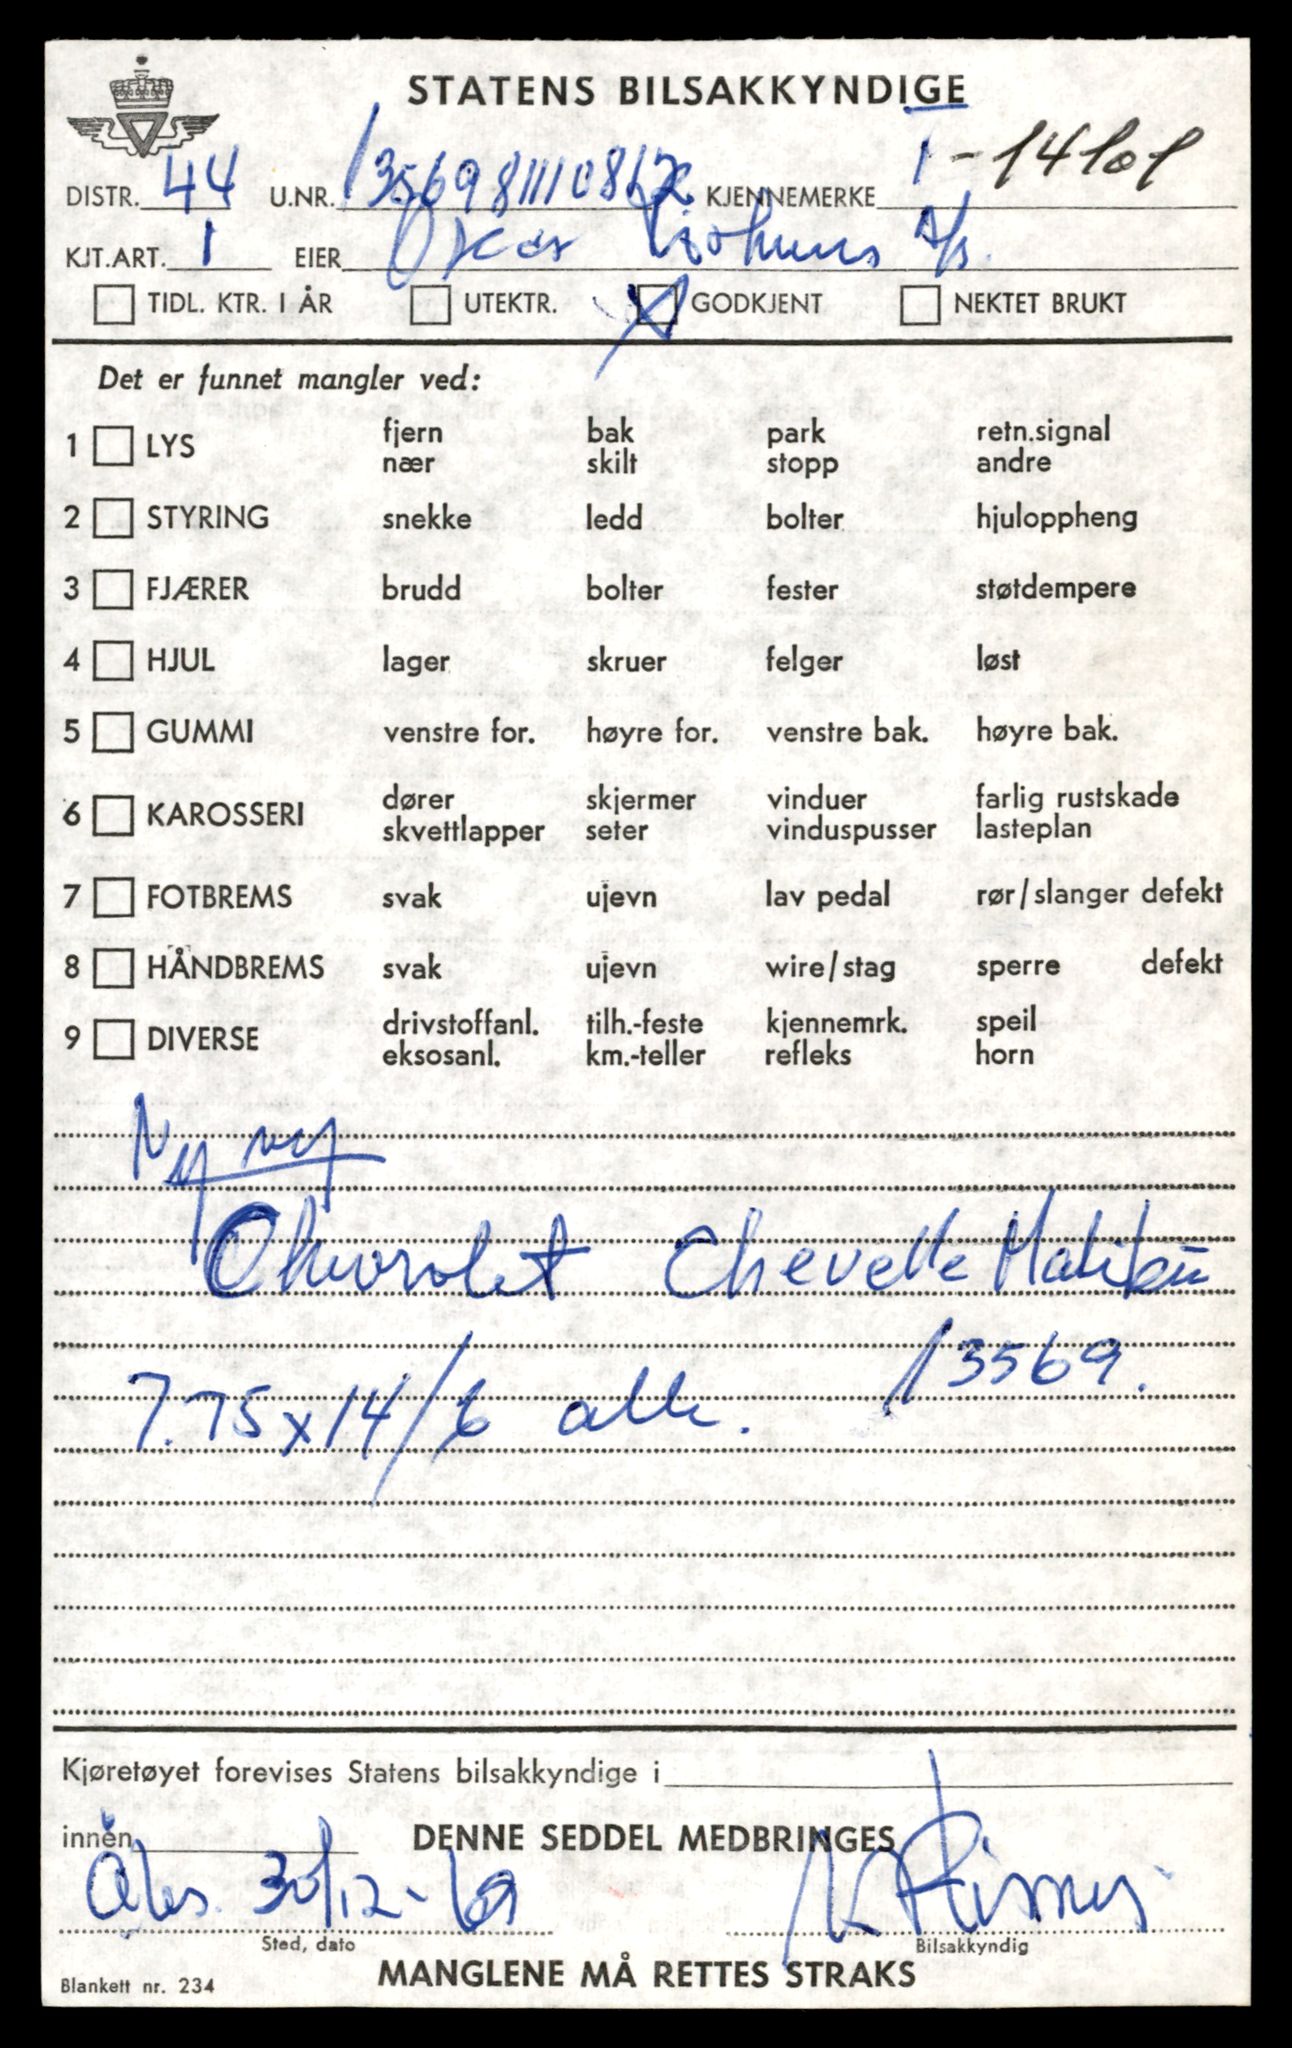 STATENS BILSAKKYNDIGE
DISTR. 44 U.NR. 135698111108 KJENNEMERKE T-14101
KJT.ART. 1 EIER A/S.
TIDL. KTR. I ÅR UTEKTR. GODKJENT NEKTET BRUKT
Det er funnet mangler ved:
1 LYS fjern bak park retn.signal
nær skilt stopp andre
2 STYRING snekke ledd bolter hjuloppheng
3 FJÆRER brudd bolter fester støtdempere
4 HJUL lager skruer felger løst
5 GUMMI venstre for. høyre for. venstre bak. høyre bak.
6 KAROSSERI dører skjermer vinduer farlig rustskade
skvettlapper seter vinduspusser lasteplan
7 FOTBREMS svak ujevn lav pedal rør/slanger defekt
8 HÅNDBREMS svak ujevn wire/stag sperre defekt
9 DIVERSE drivstoffanl. tilh.-feste kjennemrk. speil
eksosanl. km.-teller refleks horn
Ny ny
Chevrolet Chevelle Malibu
13569.
7.75x14/6 alle.
Kjøretøyet forevises Statens bilsakkyndige i
innen DENNE SEDDEL MEDBRINGES
Åles. 30/12-69
Sted, dato Bilsakkyndig
Blankett nr. 234 MANGLENE MÅ RETTES STRAKS